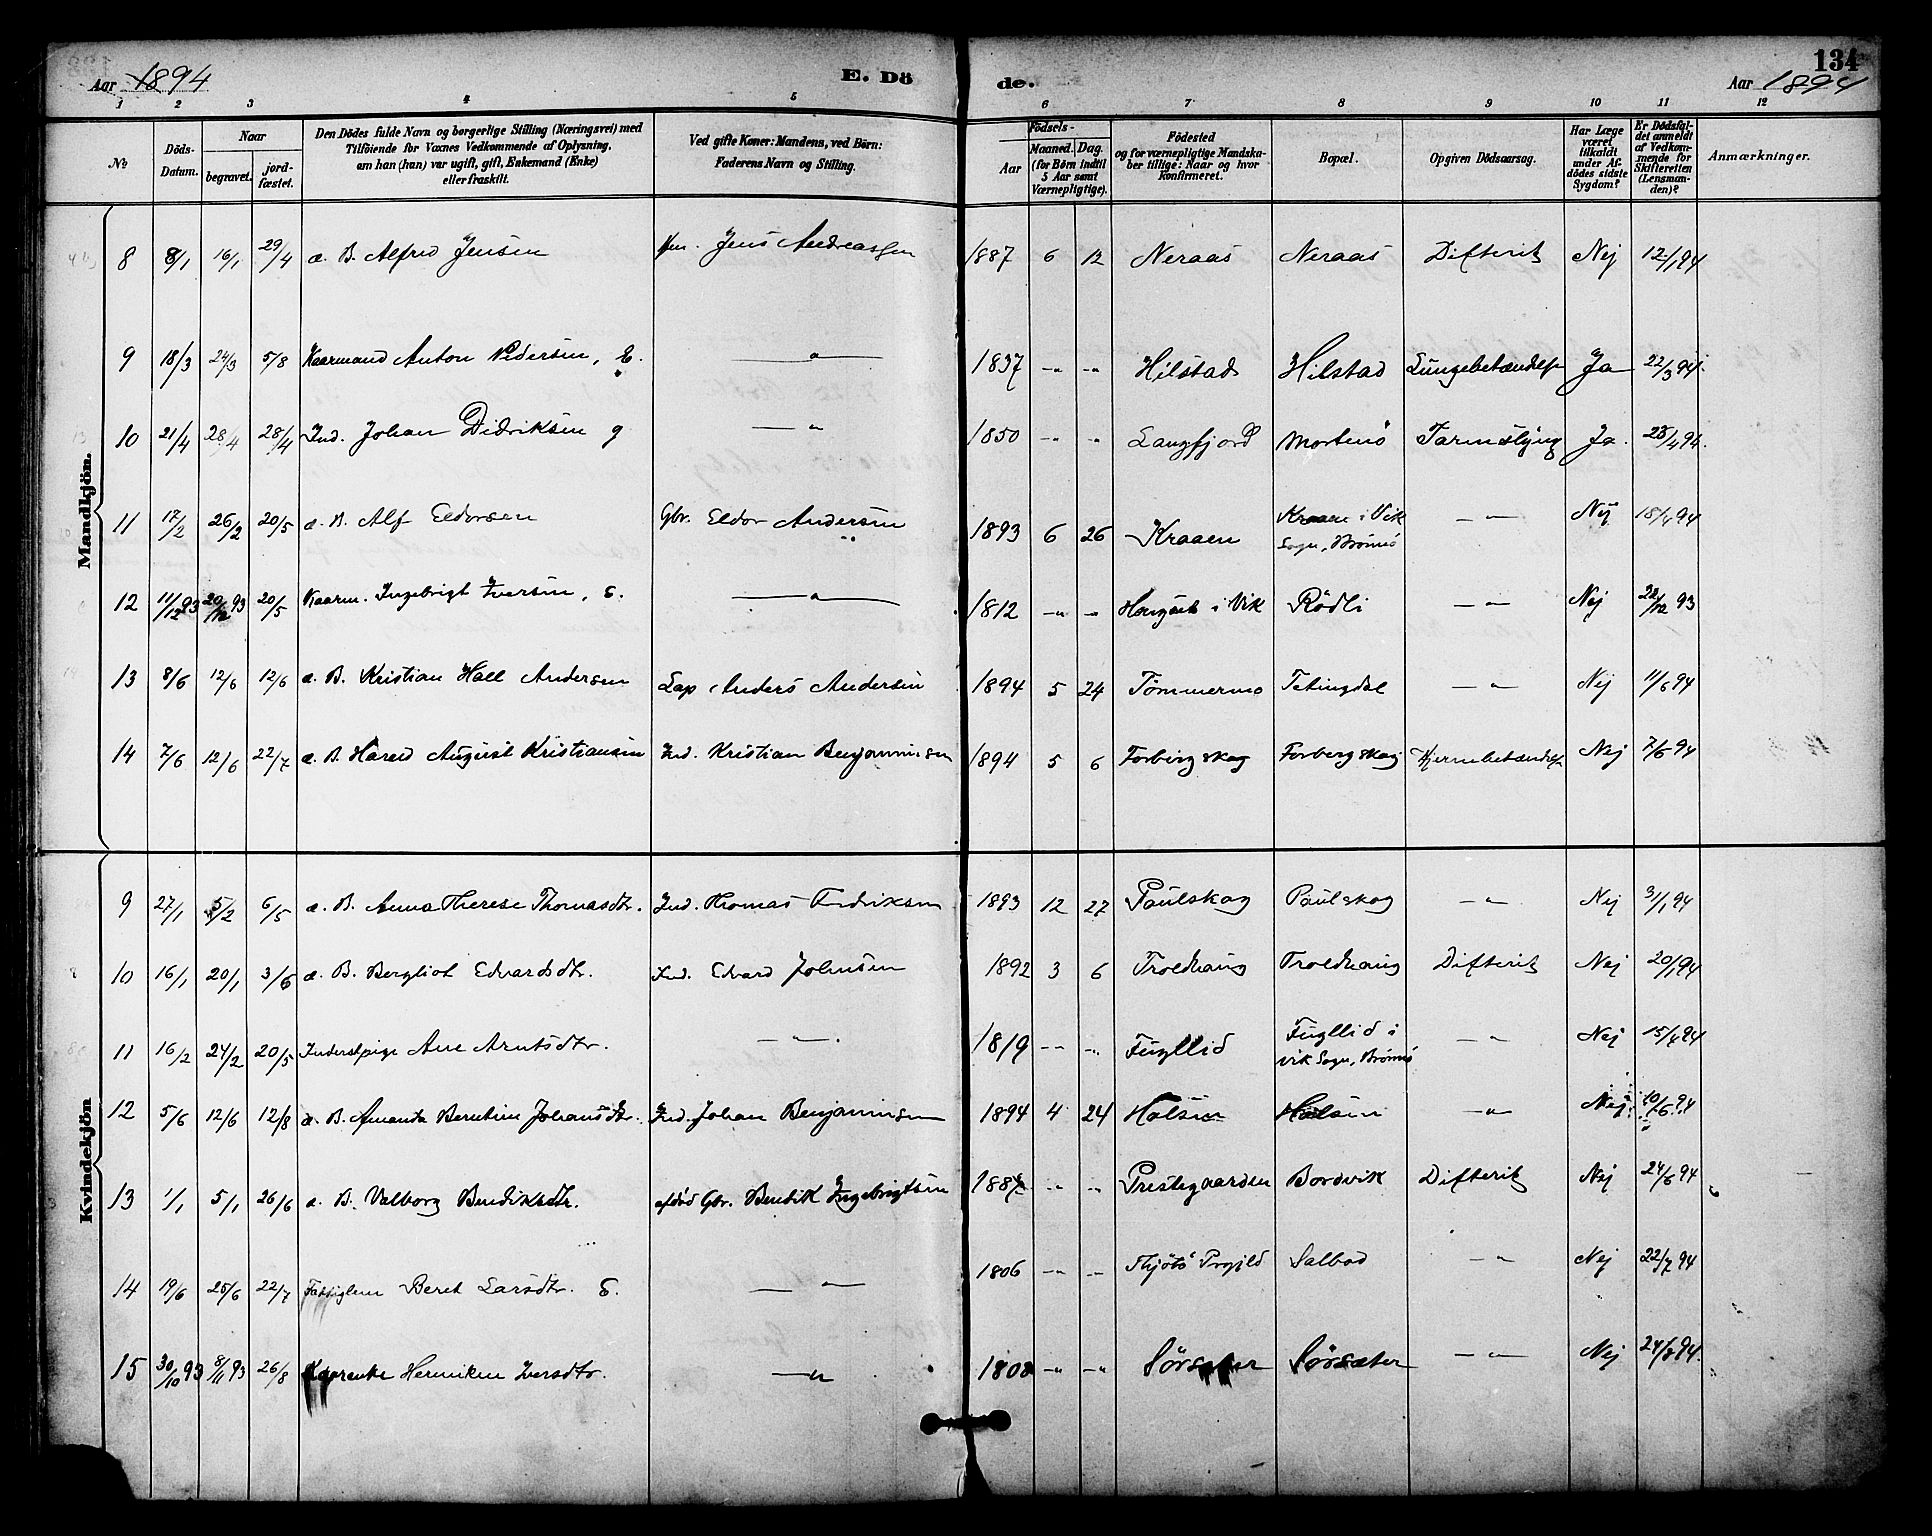 Aar 1894 E. Dö de. 134 Aar 1894
1 2 3 4 5 6 7 8 9 10 11 12
№ Döds-Datum. Naar begravet. jordfæstet. Den Dödes fulde Navn og borgerlige Stilling (Næringsvei) med Tilföiende for Voxnes Vedkommende af Oplysning, om han (hun) var ugift, gift, Enkemand (Enke) eller fraskilt. Ved gifte Koner: Mandens, ved Börn: Faderens Navn og Stilling. Födsels- Aar Maaned. Dag. (for Börn indtil 5 Aar samt Værnepligtige). Födested og for værnepligtige Mandskaber tillige: Naar og hvor konfirmeret. Bopæl. Opgiven Dödsaarsag. Har Læge været tilkaldt under Afdödes sidste Sygdom? Er Dödsfaldet anmeldt af Vedkommende for Skifteretten (Lensmanden)? Anmærkninger.
Mandkjön.
8 8/1 16/1 29/4 a. B. Alfred Jensen Jens Andreassen 1887 6 12 Neraas Neraas Difterit Nej 12/1 94
9 18/3 24/3 5/8 Kaarmand Anton Pedersen, E. — " — 1837 -"- -"- Hilstad Hilstad Lungebetændelse Ja 22/3 94.
10 21/4 28/4 28/4 Ind. Johan Didriksen g — " 1850 -"- " Langfjord Mortenö Tarmslyng Ja. 28/4 94.
11 17/2 26/2 20/5 a. B. Alf Eldorsen Gbr. Eldor Andersen 1893 6 26 Kraaen Kraaen i Vik Sogn, Brönnö — " — Nej 15/4 94
12 11/12 93 20/12 93 20/5 Kaarm. Ingebrigt Iversen, E. — " — 1812 -"- -"- i Vik Rödli — " — Nej 22/12 93
13 8/6 12/6 12/6 a. B. Kristian Hall Andersen Lap Anders Andersen 1894 5 24 Tömmermo Tetingdal — " — Nej 11/6 94
14 7/6 12/6 22/7 a. B. Harald August Kristiansen Ind. Kristian Benjaminsen 1894 5 6 Forbergskog Forbergskog Hjernebetændelse Nej 7/6 94
Kvindekjön
9 27/1 5/2 6/5 a. B. Anna Therese Thomasdtr. Ind. Thomas Fredriksen 1893 12 27 Paulskog Paulskog — " — Nej 31/1 94
10 16/1 20/1 3/6 a. B. Bergliot Edvardsdtr. Ind. Edvard Johnsen 1892 3 6 Troldhaug Troldhaug Difterit Nej 20/1 94
11 16/2 24/2 20/5 Inderstpige Ane Arntsdtr. — " — . 1819 -"- -"- Fugllid Fugllid i Vik Sogn, Brönnö — " — Nej 15/4 94
12 5/6 12/6 12/8 a. B. Amanda Berntine Johansdtr. Ind. Johan Benjaminsen 1894 4 24 Holsen Holsen — " — Nej 10/6 94
13 1/1 5/1 26/6 a. B. Valborg Bendiksdtr. afdöd Gbr. Bendik Ingebrigtsen -"- -"- Prestegaarden Bordvik Difterit Nej 24/6 94
14 19/6 25/6 22/7 Fattiglem Beret Larsdtr. E. — " — 1806 -"- -"- Thjötö Prgjld Salbod — " — Nej 22/7 94
15 30/10 93 8/11 93 26/8 Kaarenke Henrikka Iversdtr. — " — 1808 -"- -"- Sörsæter Sörsæter — " — Nej 24/8 94.